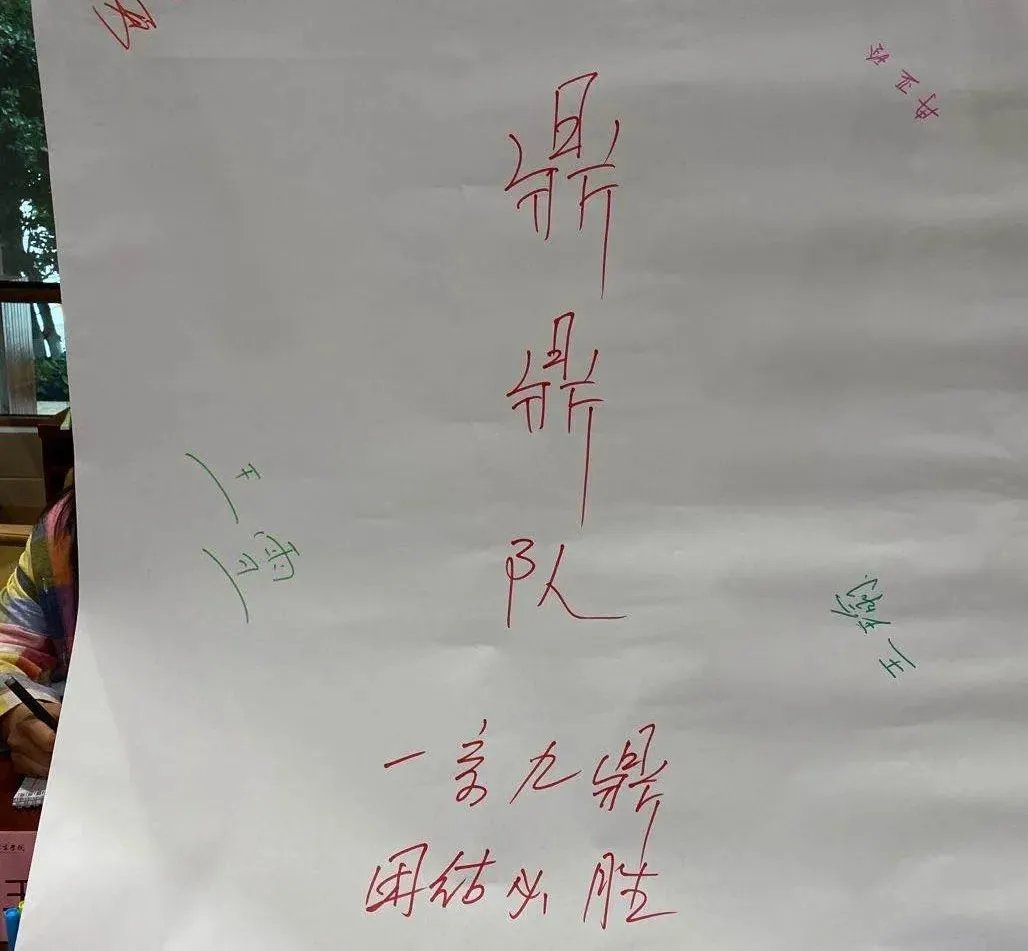 鼎
鼎
队
一言九鼎
团结必胜